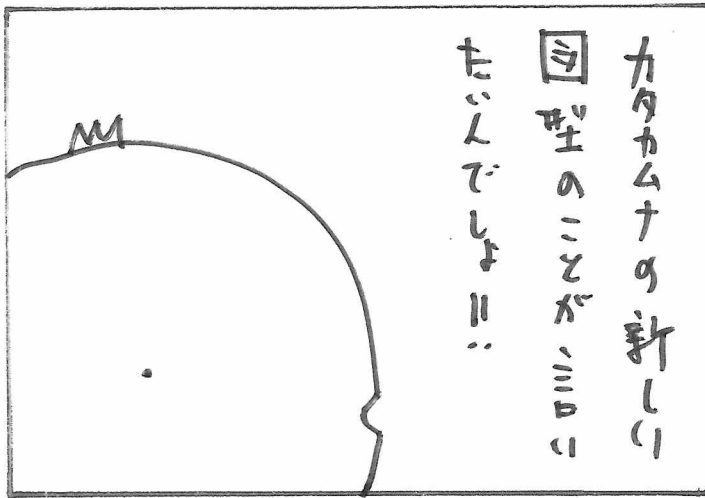 カタカムナの新しい
図型のことが言い
たいんでしょ!!